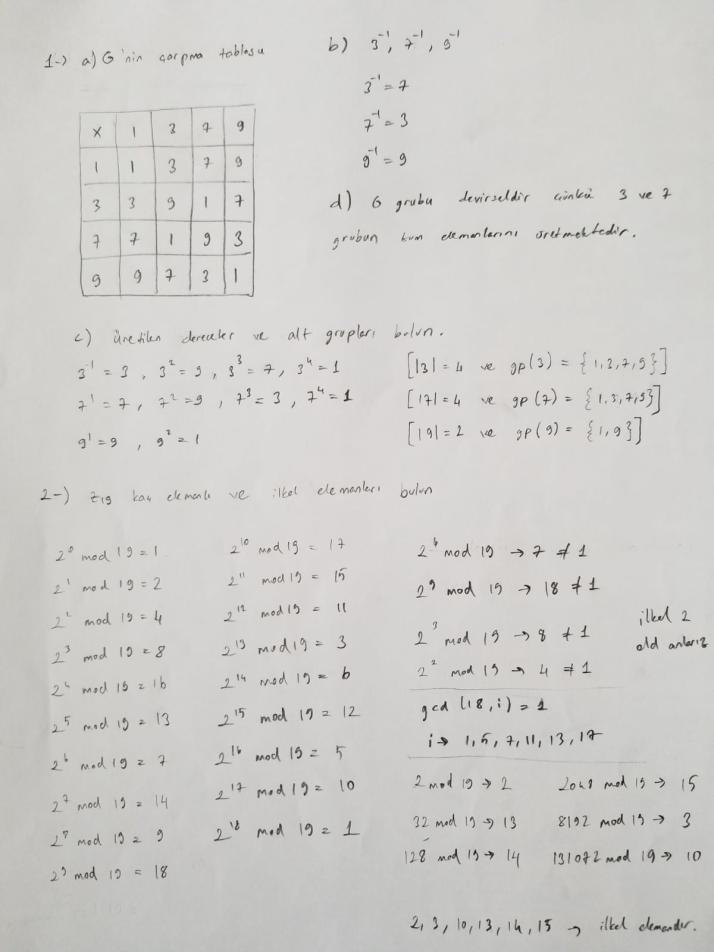 1-) a) G'nin çarpma tablosu
x 1 3 7 9
1 1 3 7 9
3 3 9 1 7
7 7 1 9 3
9 9 7 3 1
b) 3⁻¹, 7⁻¹, 9⁻¹
3⁻¹ = 7
7⁻¹ = 3
9⁻¹ = 9
d) G grubu devirseldir çünkü 3 ve 7
grubun tüm elemanlarını üretmektedir.
c) Üretilen dereceler ve alt grupları bulun.
3⁻¹ = 3 , 3² = 9 , 3³ = 7 , 3⁴ = 1
7¹ = 7 , 7² = 9 , 7³ = 3 , 7⁴ = 1
9¹ = 9 , 9² = 1
[|3| = 4 ve gp(3) = {1,3,7,9}]
[|7| = 4 ve gp(7) = {1,3,7,9}]
[|9| = 2 ve gp(9) = {1,9}]
2-) Z19 kaç elemanlı ve ilkel elemanları bulun
2⁰ mod 19 = 1
2¹ mod 19 = 2
2² mod 19 = 4
2³ mod 19 = 8
2⁴ mod 19 = 16
2⁵ mod 19 = 13
2⁶ mod 19 = 7
2⁷ mod 19 = 14
2⁸ mod 19 = 9
2⁹ mod 19 = 18
2¹⁰ mod 19 = 17
2¹¹ mod 19 = 15
2¹² mod 19 = 11
2¹³ mod 19 = 3
2¹⁴ mod 19 = 6
2¹⁵ mod 19 = 12
2¹⁶ mod 19 = 5
2¹⁷ mod 19 = 10
2¹⁸ mod 19 = 1
2⁶ mod 19 → 7 ≠ 1
2⁹ mod 19 → 18 ≠ 1
2³ mod 19 → 8 ≠ 1
2² mod 19 → 4 ≠ 1
ilkel 2
old anlarız
gcd (18,i) = 1
i → 1,5,7,11,13,17
2 mod 19 → 2
32 mod 19 → 13
128 mod 19 → 14
2048 mod 19 → 15
8192 mod 19 → 3
131072 mod 19 → 10
2, 3, 10, 13, 14, 15 → ilkel elemandır.